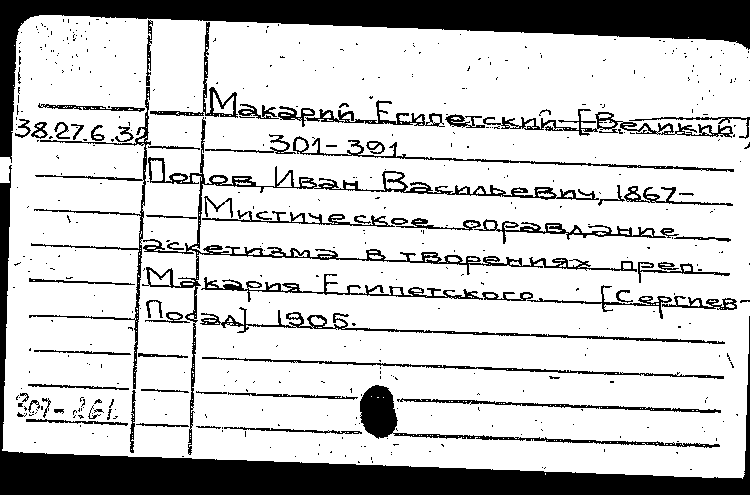 Макарий Египетский [Великий],
38.27.6.32
301-391.
Попов, Иван Васильевич, 1867-
Мистическое оправдание
аскетизма в творениях преп.
Макария Египетского. [Сергиев-
Посад] 1905.
307-261